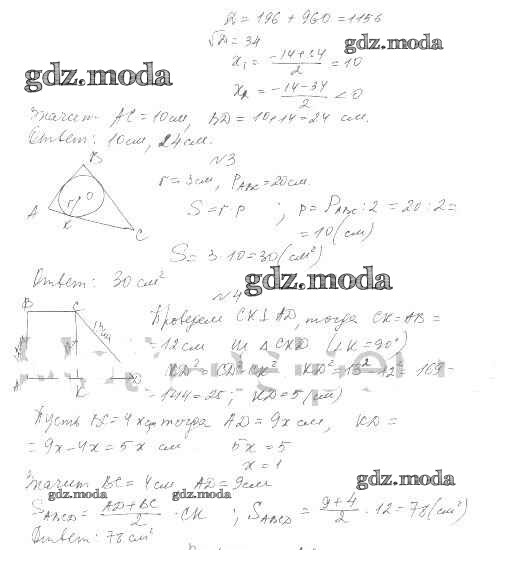 D = 196 + 960 = 1156
√D = 34
gdz.moda
x₁ = (-14+34)/2 = 10
gdz.moda
x₂ = (-14-34)/2 < 0
Значит AC = 10 см, BD = 10+14 = 24 см.
Ответ: 10 см, 24 см.
№3
B
r = 3 см, P_ABC = 20 см.
r O
A
K
C
S = r · p ; p = P_ABC : 2 = 20 : 2 =
= 10 (см)
S = 3 · 10 = 30 (см²)
Ответ: 30 см²
gdz.moda
№4
B C
13 см
A K D
Проведем CK ⊥ AD, тогда CK = AB =
= 12 см Δ CKD (∠K = 90°)
KD² = CD² - CK² KD² = 13² - 12² = 169 -
- 144 = 25; KD = 5 (см)
Пусть BC = 4x см, тогда AD = 9x см, KD =
= 9x - 4x = 5x см 5x = 5
x = 1
Значит BC = 4 см, AD = 9 см
gdz.moda
gdz.moda gdz.moda
S_ABCD = (AD+BC)/2 · CK ; S_ABCD = (9+4)/2 · 12 = 78 (см²)
Ответ: 78 см²